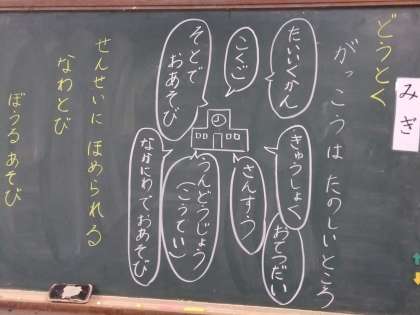 みぎ
どうとく
がっこうは たのしいところ
たいいくかん
きゅうしょく
おてつだい
こくご
さんすう
そとで
おあそび
うんどうじょう
(こうてい)
なかにわでおあそび
せんせいに ほめられる
なわとび
ぼうるあそび